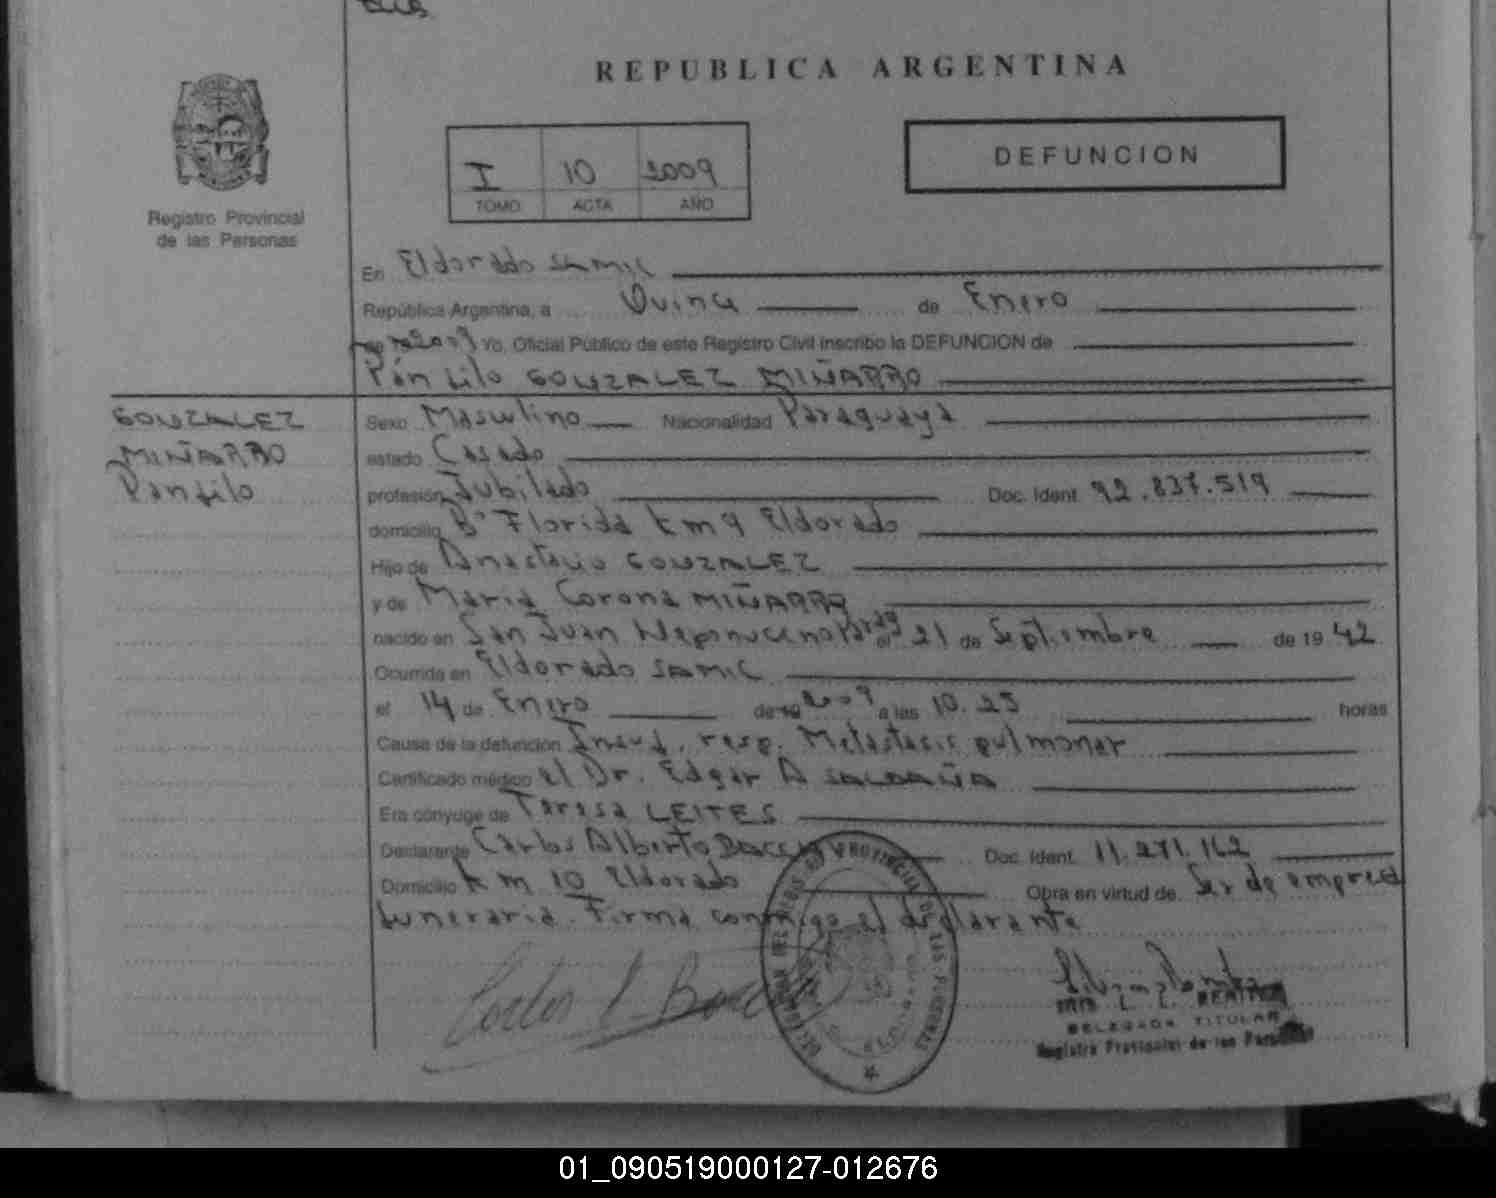 REPUBLICA ARGENTINA
I 10 2009
TOMO ACTA AÑO
DEFUNCION
Registro Provincial
de las Personas
En Eldorado SAMIC
República Argentina, a Quince de Enero
de 2009 Yo, Oficial Público de este Registro Civil inscribo la DEFUNCION de
Pánfilo GONZALEZ MIÑARRO
GONZALEZ
MIÑARRO
Panfilo
Sexo Masculino Nacionalidad Paraguaya
estado Casado
profesión Jubilado Doc. Ident. 92.837.519
domicilio Bº Florida km 9 Eldorado
Hijo de Anastacio GONZALEZ
y de Maria Corona MIÑARRO
nacido en San Juan Nepomuceno Parag el 21 de Septiembre de 1942
Ocurrida en Eldorado SAMIC
el 14 de Enero de 19 2009 a las 10.25 horas
Cause de la defunción Insuf. resp. Metastasis pulmonar
Certificado médico el Dr. Edgar A SALDAÑA
Era cónyuge de Teresa LEITES
Declarante Carlos Alberto Doc. Ident. 11.271.162
Domicilio km 10 Eldorado Obra en virtud de Ser de empresa
funeraria. Firma conmigo el declarante
DELEGADA TITULAR
Registro Provincial de las Personas
01_090519000127-012676